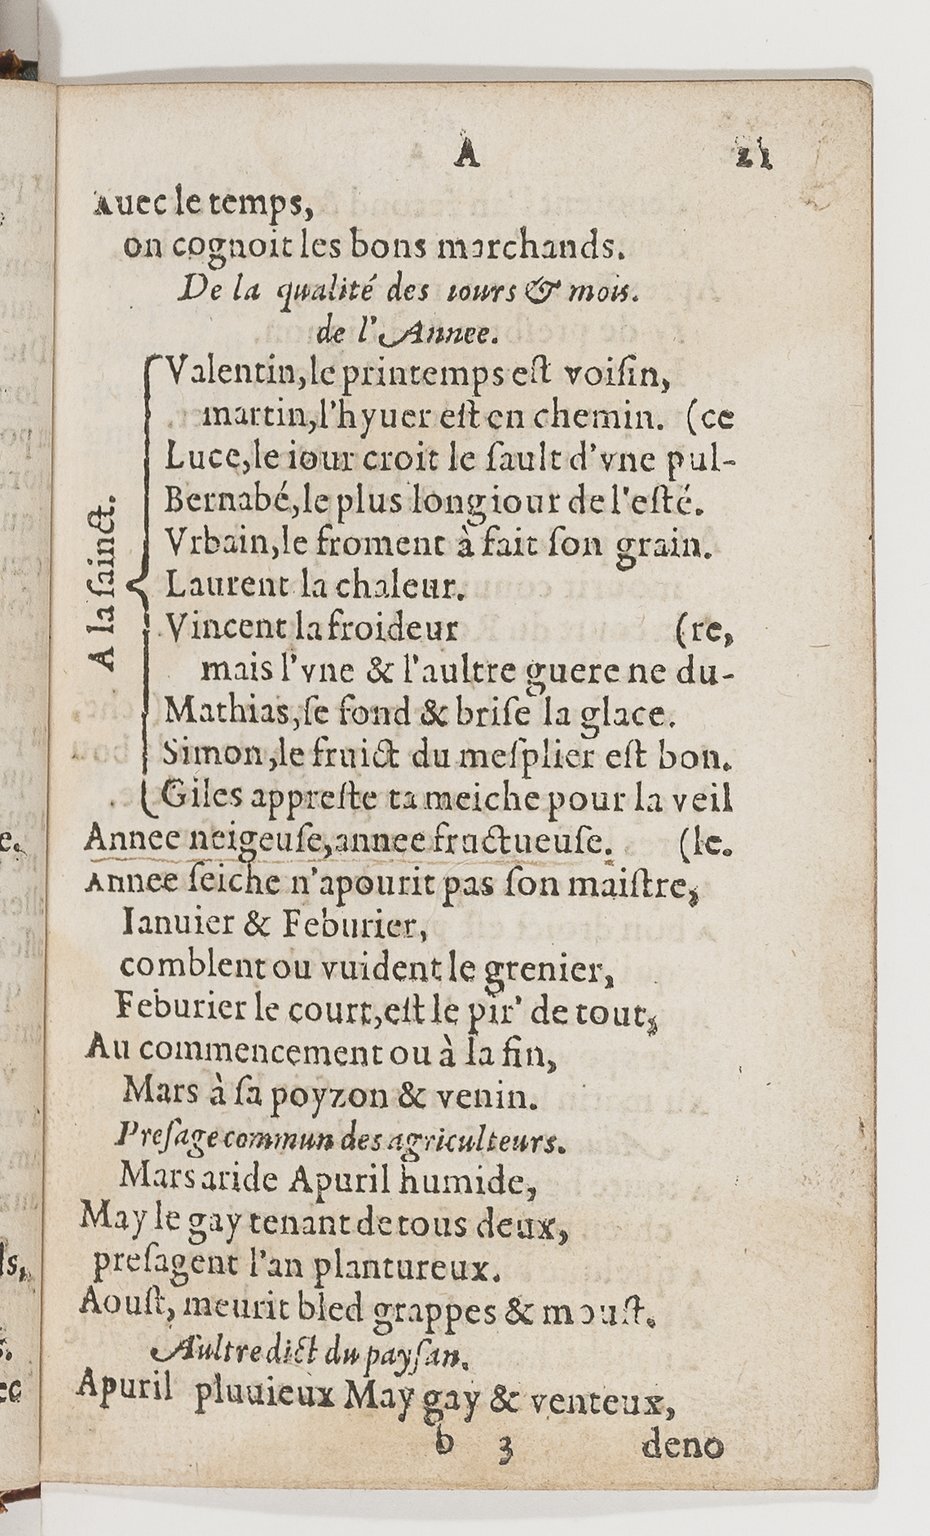 A 21
Auec le temps,
on cognoit les bons marchands.
De la qualité des iours & mois.
de l'Annee.
A la sainct.
Valentin,le printemps eſt voiſin,
martin,l'hyuer eſt en chemin. (ce
Luce,le iour croit le ſault d'vne pul-
Bernabé,le plus long iour de l'eſté.
Vrbain,le froment à fait ſon grain.
Laurent la chaleur.
Vincent la froideur (re,
mais l'vne & l'aultre guere ne du-
Mathias,ſe fond & briſe la glace.
Simon,le fruict du meſplier eſt bon.
Giles appreſte ta meiche pour la veil
Annee neigeuſe,annee fructueuſe. (le.
Annee ſeiche n'apourit pas ſon maiſtre,
Ianuier & Feburier,
comblent ou vuident le grenier,
Feburier le court,eſt le pir' de tout,
Au commencement ou à la fin,
Mars à ſa poyzon & venin.
Preſage commun des agriculteurs.
Mars aride Apuril humide,
May le gay tenant de tous deux,
preſagent l'an plantureux.
Aouſt, meurit bled grappes & mouſt.
Aultre dict du payſan.
Apuril pluuieux May gay & venteux,
b 3 deno